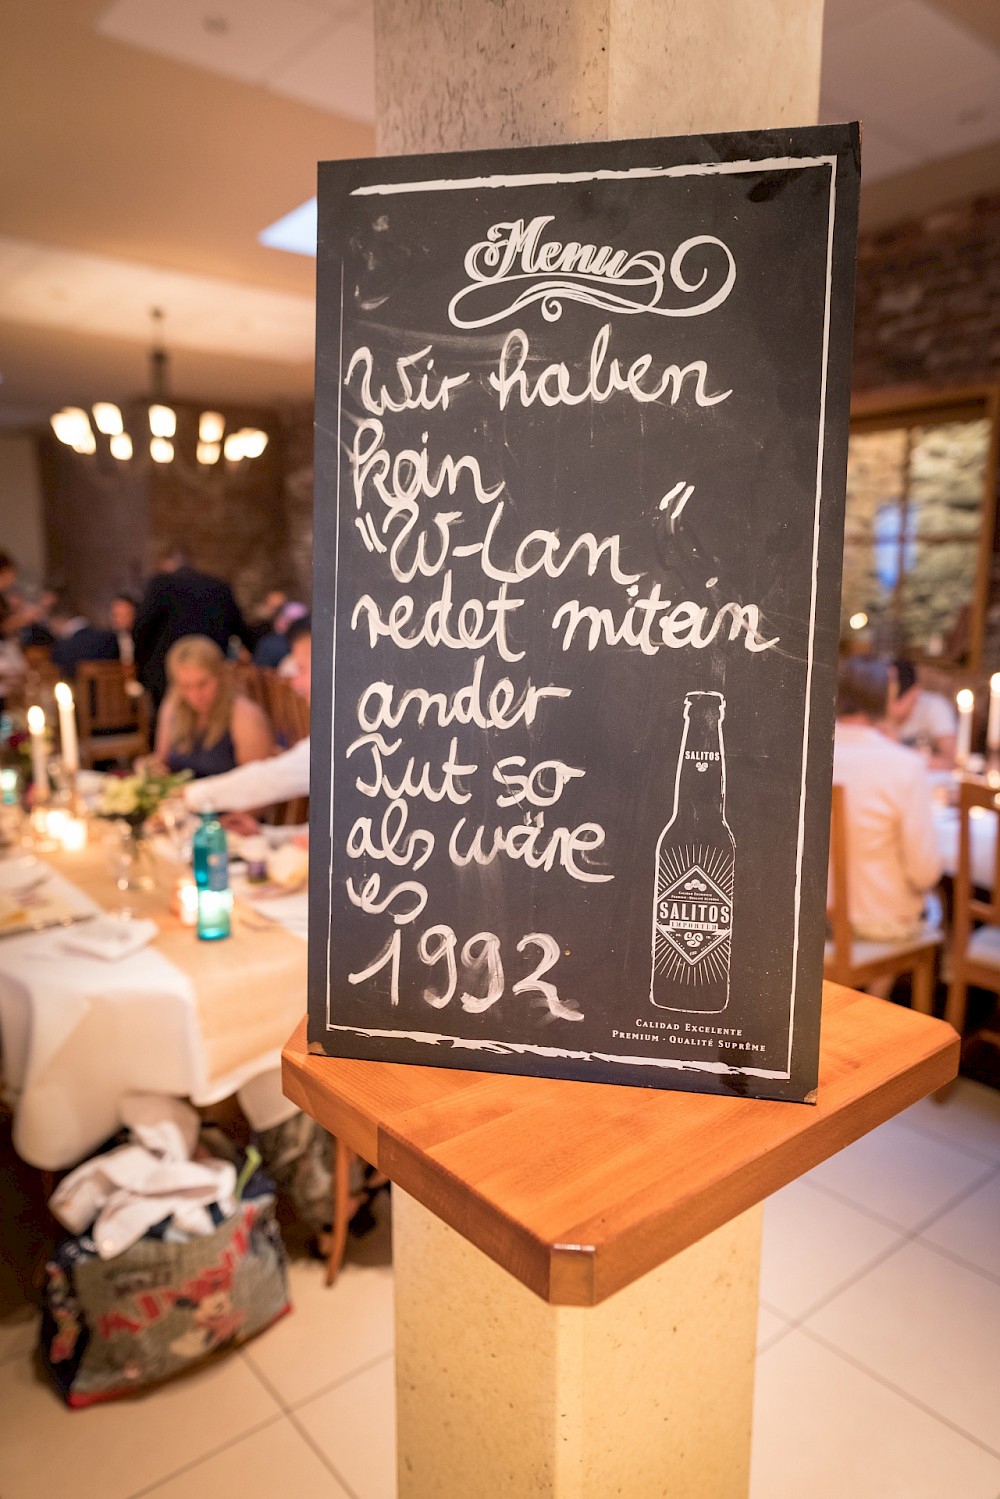 Menu
Wir haben
kein
"W-Lan"
redet mitein
ander
Tut so
als wäre
es
1992
SALITOS
SALITOS
IMPORTED
CALIDAD EXCELENTE
PREMIUM · QUALITÉ SUPRÊME